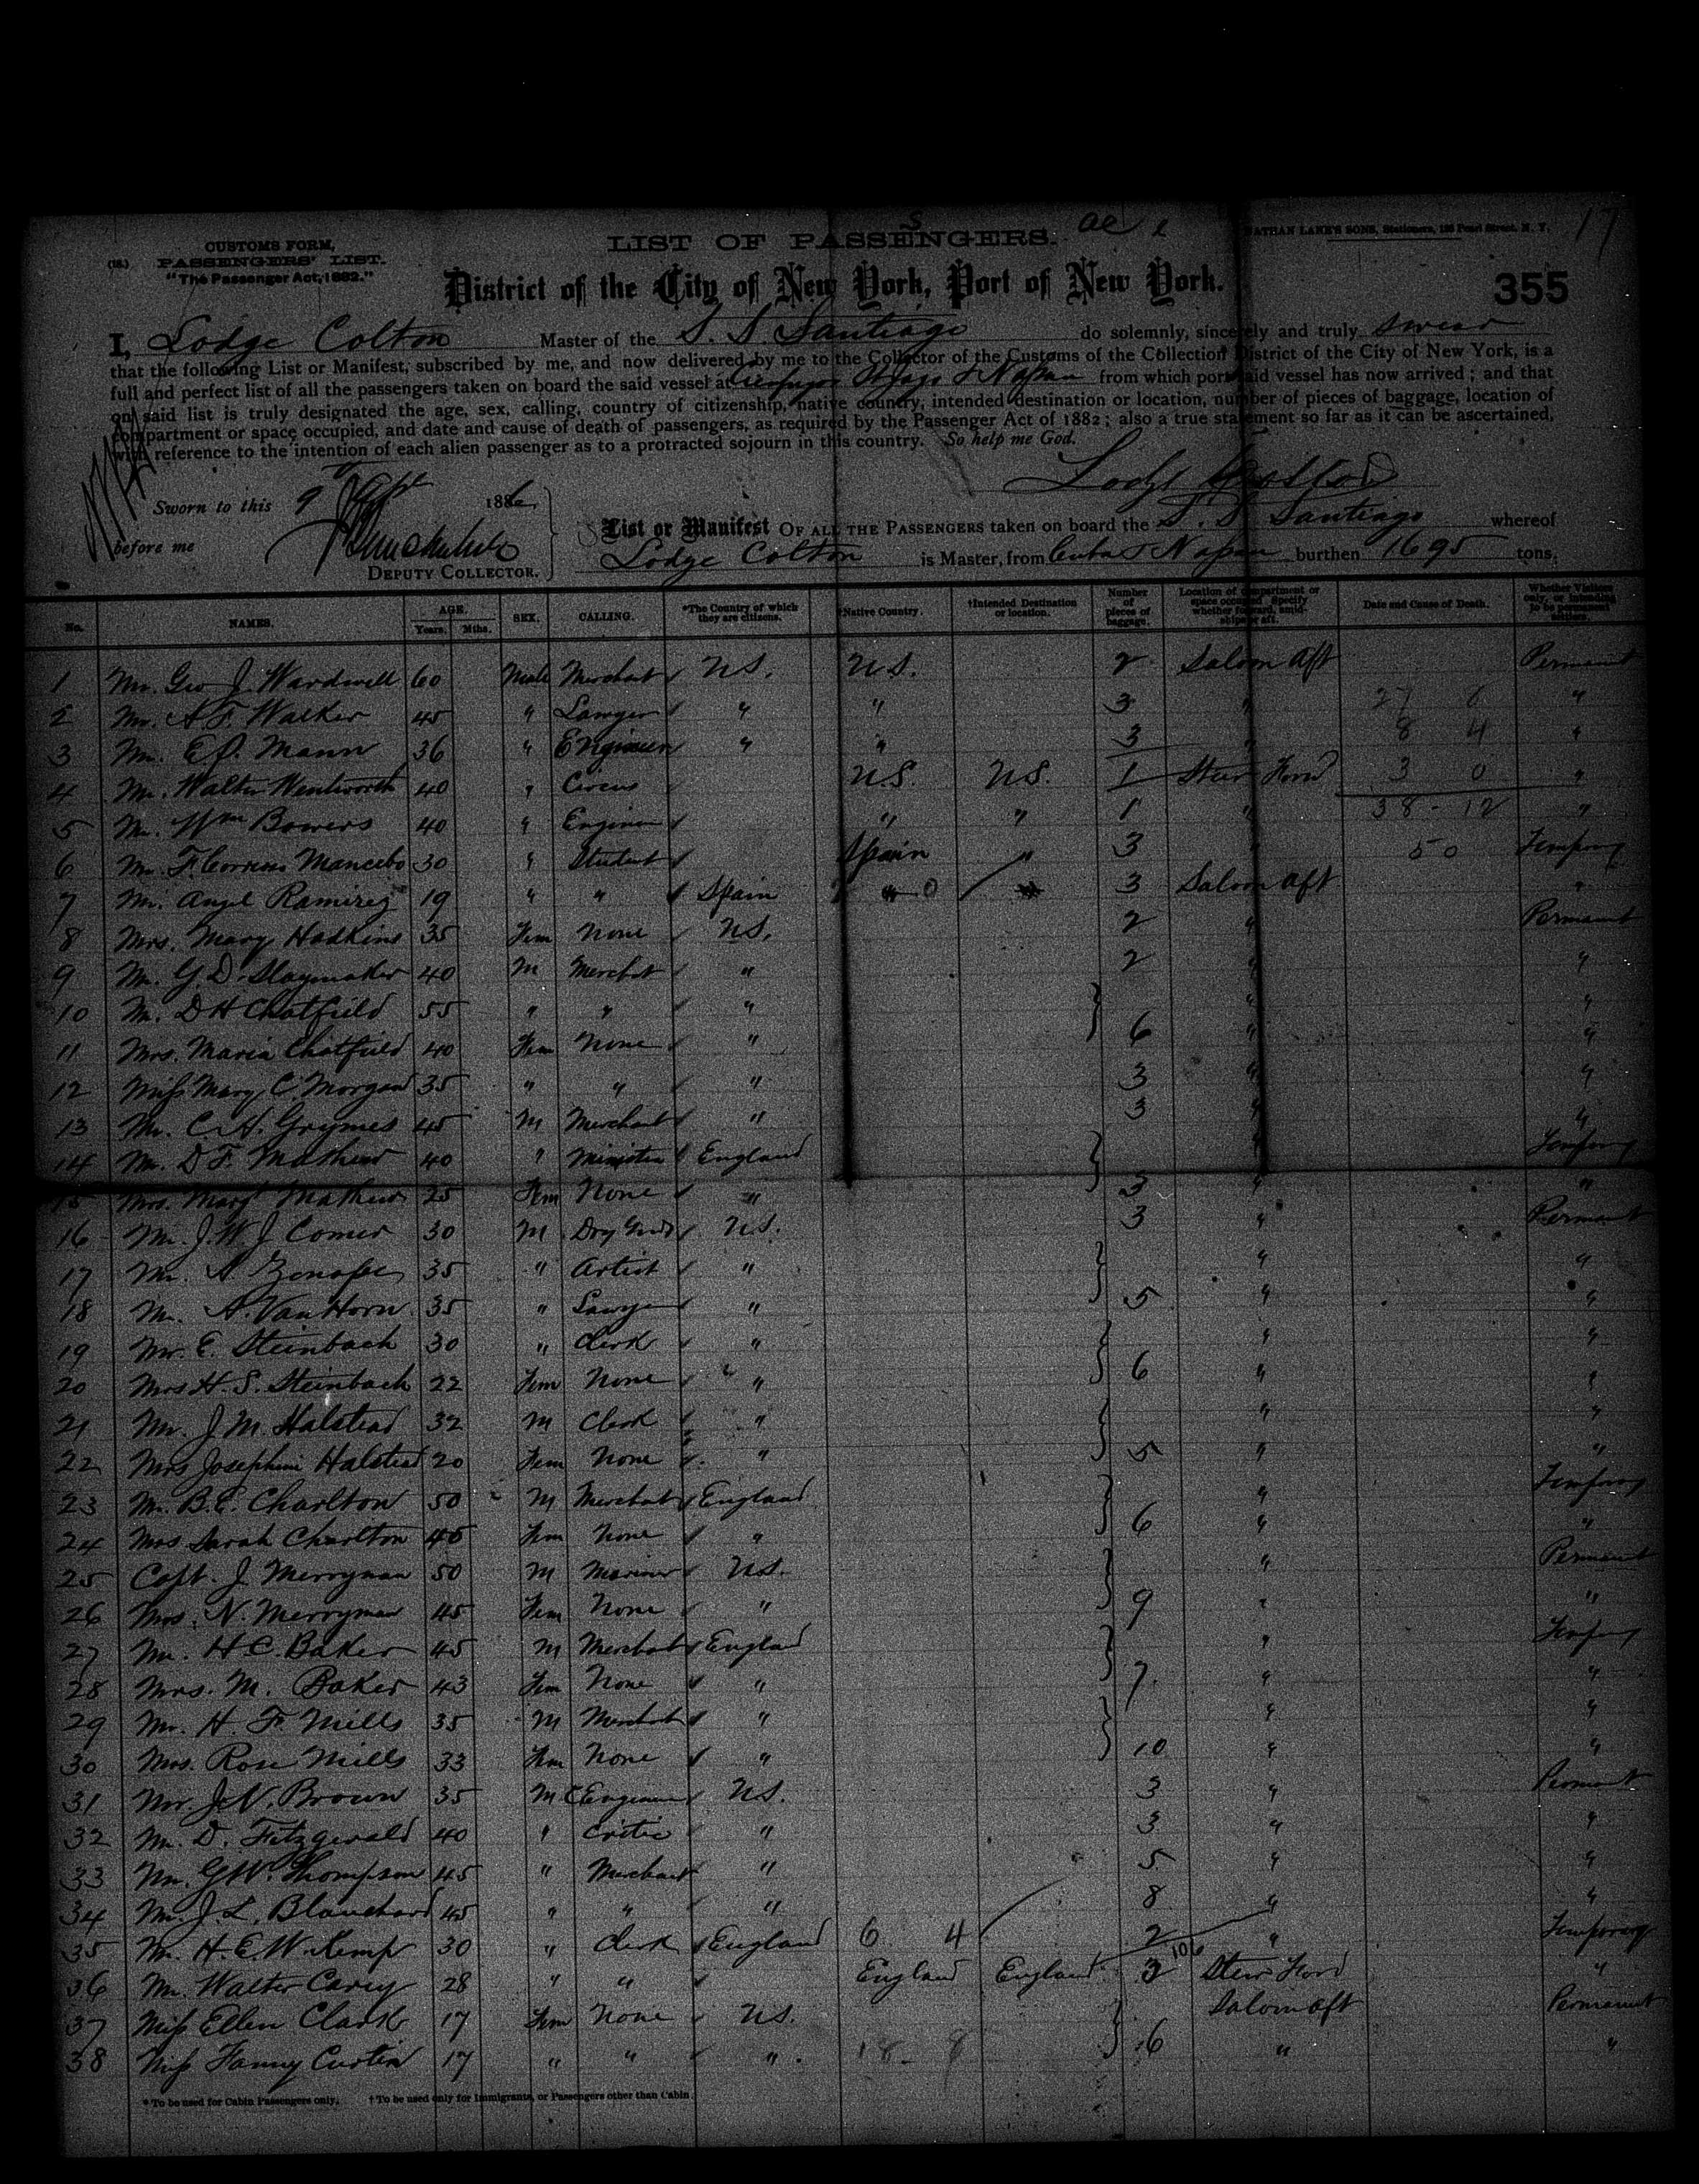 LIST OF PASSENGERS.
NATHAN LANE'S SONS, Stationers, 138 Pearl Street, N. Y.
17
CUSTOMS FORM,
PASSENGERS' LIST.
"The Passenger Act, 1882."
District of the City of New York, Port of New York.
355
I, Lodge Colton Master of the S. S. Santiago do solemnly, sincerely and truly swear
that the following List or Manifest, subscribed by me, and now delivered by me to the Collector of the Customs of the Collection District of the City of New York, is a
full and perfect list of all the passengers taken on board the said vessel at from which port said vessel has now arrived; and that
on said list is truly designated the age, sex, calling, country of citizenship, native country, intended destination or location, number of pieces of baggage, location of
compartment or space occupied, and date and cause of death of passengers, as required by the Passenger Act of 1882; also a true statement so far as it can be ascertained,
with reference to the intention of each alien passenger as to a protracted sojourn in this country. So help me God.
Lodge Colton
Sworn to this 9 188
before me
DEPUTY COLLECTOR.
List or Manifest OF ALL THE PASSENGERS taken on board the S. S. Santiago whereof
Lodge Colton is Master, from Cuba & Nassau burthen 1695 tons.
No. NAMES. AGE. Years. Mths. SEX. CALLING. *The Country of which they are citizens. †Native Country. †Intended Destination or location. Number of pieces of baggage. Location of compartment or space occupied. Specify whether forward, amidships or aft. Date and Cause of Death. Whether Visitors only, or intending to be permanent settlers.
1 Mr. Geo J. Wardwell 60 Male Merchant U.S. U.S. 2 Saloon Aft Permant
2 Mr. A F. Walker 45 " Lawyer " " 3 " 27 6 "
3 Mr. E P. Mann 36 " Engineer " " 3 " 8 4 "
4 Mr. Walter Wentworth 40 " Circus U.S. U.S. 1 Steer Forwd 3 0 "
5 Mr. Wm Bowers 40 " Engineer " " 1 " 38 - 12 "
6 Mr. F. Mancebo 30 " Student Spain " 3 " 50 Tempory
7 Mr. Angel Ramirez 19 " " Spain 3 Saloon Aft "
8 Mrs. Mary Hadkins 35 Fem None U.S. 2 " Permant
9 Mr. G. D. Slaymaker 40 M Merchant " 2 " "
10 Mr. D H Chatfield 55 " " " " "
11 Mrs. Maria Chatfield 40 Fem None " 6 " "
12 Miss Mary C. Morgan 35 " " " 3 " "
13 Mr. C. H. Grymes 45 M Merchant " 3 " "
14 Mr. D F. Mathew 40 " Minister England " Tempory
15 Mrs. Mary Mathew 25 Fem None " 3 " "
16 Mr. J. W. J Comer 30 M Dry Goods U.S. 3 " Permant
17 Mr. A. 35 " Artist " " "
18 Mr. A. Van Horn 35 " Lawyer " 5 " "
19 Mr. E. Steinbach 30 " Clerk " " "
20 Mrs H. S. Steinbach 22 Fem None " 6 " "
21 Mr. J. M. Halstead 32 M Clerk " " "
22 Mrs Josephine Halstead 20 Fem None " 5 " "
23 Mr. B. E. Charlton 50 M Merchant England " Tempory
24 Mrs Sarah Charlton 45 Fem None " 6 " "
25 Capt. J. Merryman 50 M Mariner U.S. " Permant
26 Mrs. N. Merryman 45 Fem None " 9 " "
27 Mr. H C. Baker 45 M Merchant England " Tempory
28 Mrs. M. Baker 43 Fem None " 7 " "
29 Mr. H. F. Mills 35 M Merchant " " "
30 Mrs. Rose Mills 33 Fem None " 10 " "
31 Mr. J. N. Brown 35 M C Engineer U.S. 3 " Permant
32 Mr. D. Fitzgerald 40 " Critic " 3 " "
33 Mr. G W. Thompson 45 " Merchant " 5 " "
34 Mr. J. L. Blanchard 45 " " " 8 " "
35 Mr. H. E. W. Kemp 30 " Clerk England 6 4 2 " Temporary
36 Mr. Walter Carey 28 " " England England 106 3 Steer Forwd "
37 Miss Ellen Clark 17 Fem None U.S. Saloon aft Permanent
38 Miss Fanny Curtin 17 " " " 18 - 8 6 " "
* To be used for Cabin Passengers only. † To be used only for Immigrants, or Passengers other than Cabin.